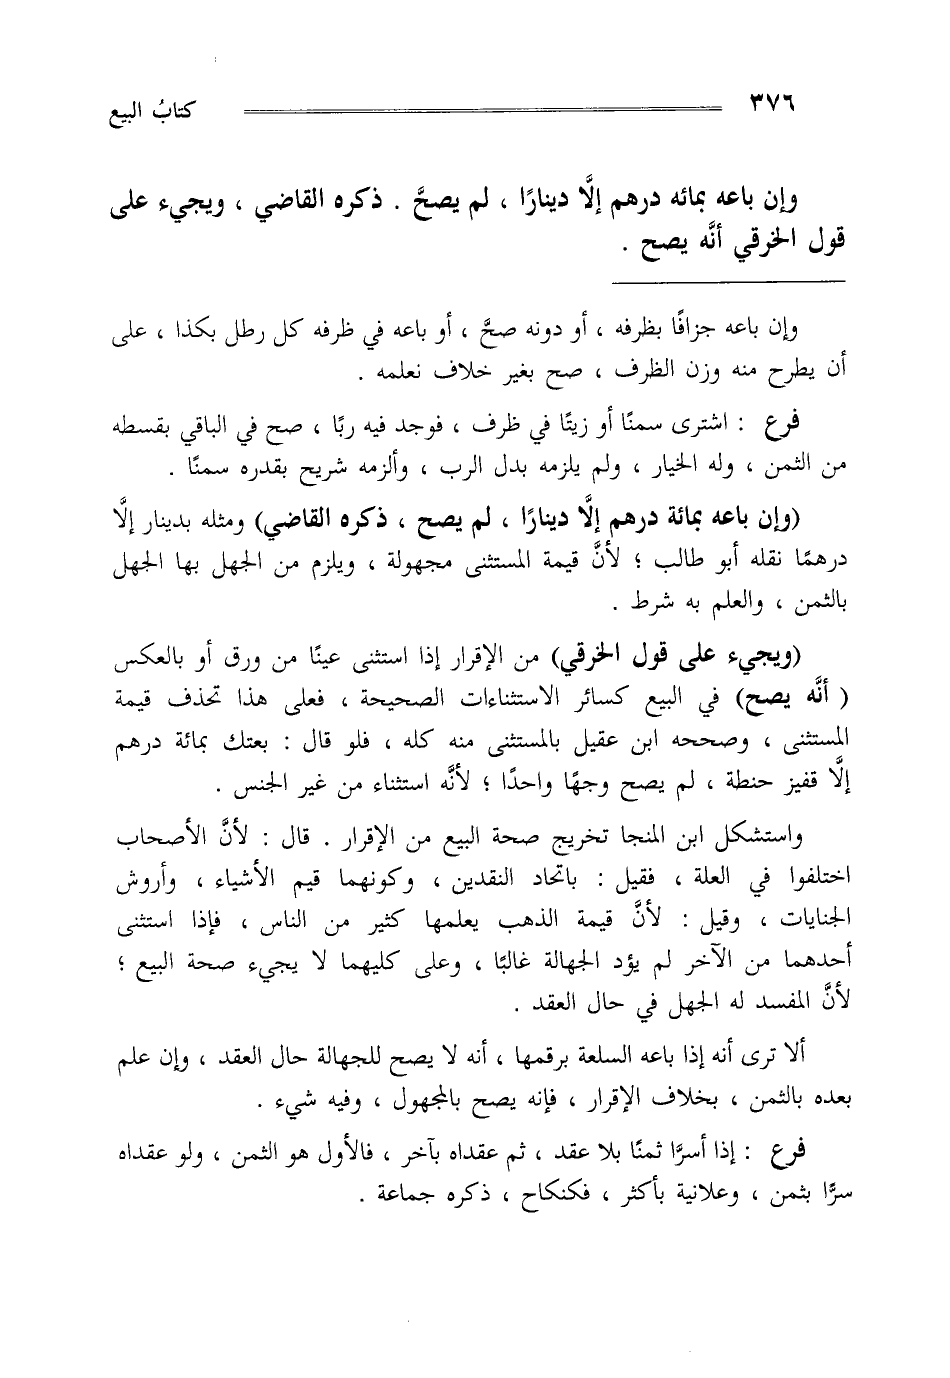 ٣٧٦ كتابُ البيع
وإن باعه بمائه درهم إلَّا دينارًا ، لم يصحَّ . ذكره القاضي ، ويجيء على
قول الخرقي أنَّه يصح .
وإن باعه جزافًا بظرفه ، أو دونه صحَّ ، أو باعه في ظرفه كل رطل بكذا ، على
أن يطرح منه وزن الظرف ، صح بغير خلاف نعلمه .
فرع : اشترى سمنًا أو زيتًا في ظرف ، فوجد فيه ربًا ، صح في الباقي بقسطه
من الثمن ، وله الخيار ، ولم يلزمه بدل الرب ، وألزمه شريح بقدره سمنًا .
(وإن باعه بمائة درهم إلَّا دينارًا ، لم يصح ، ذكره القاضي) ومثله بدينار إلَّا
درهمًا نقله أبو طالب ؛ لأنَّ قيمة المستثنى مجهولة ، ويلزم من الجهل بها الجهل
بالثمن ، والعلم به شرط .
(ويجيء على قول الخرقي) من الإقرار إذا استثنى عينًا من ورق أو بالعكس
( أنَّه يصح) في البيع كسائر الاستثناءات الصحيحة ، فعلى هذا تحذف قيمة
المستثنى ، وصححه ابن عقيل بالمستثنى منه كله ، فلو قال : بعتك بمائة درهم
إلَّا قفيز حنطة ، لم يصح وجهًا واحدًا ؛ لأنَّه استثناء من غير الجنس .
واستشكل ابن المنجا تخريج صحة البيع من الإقرار . قال : لأنَّ الأصحاب
اختلفوا في العلة ، فقيل : باتحاد النقدين ، وكونهما قيم الأشياء ، وأروش
الجنايات ، وقيل : لأنَّ قيمة الذهب يعلمها كثير من الناس ، فإذا استثنى
أحدهما من الآخر لم يؤد الجهالة غالبًا ، وعلى كليهما لا يجيء صحة البيع ؛
لأنَّ المفسد له الجهل في حال العقد .
ألا ترى أنه إذا باعه السلعة برقمها ، أنه لا يصح للجهالة حال العقد ، وإن علم
بعده بالثمن ، بخلاف الإقرار ، فإنه يصح بالمجهول ، وفيه شيء .
فرع : إذا أسرَّا ثمنًا بلا عقد ، ثم عقداه بآخر ، فالأول هو الثمن ، ولو عقداه
سرًّا بثمن ، وعلانية بأكثر ، فكنكاح ، ذكره جماعة .